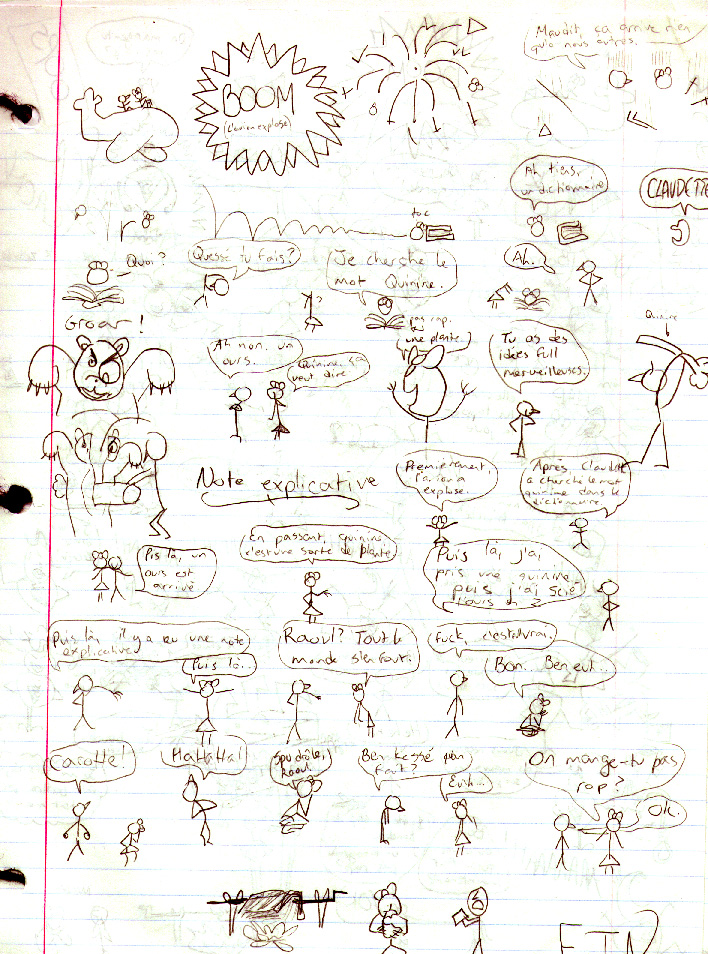 BOOM
(L'avion explose)
Maudit, ça arrive rien
qu'à nous autres.
toc
Ah, tiens,
un dictionnaire
CLAUDETTE
Quoi?
Quessé tu fais?
Je cherche le
mot Quinine.
Ah.
Groar!
Ah non, un
ours.
Quinine, ça
veut dire
une plante.
Tu as des
idées full
merveilleuses.
Quinine
Note explicative
Premièrement,
l'avion a
explosé.
Après, Claudette
a cherché le mot
quinine dans le
dictionnaire.
Pis là, un
ours est
arrivé
En passant, quinine
c'est une sorte de plante
Puis là, j'ai
pris une quinine
puis j'ai scié
l'ours en 2
Puis là, il y a eu une note
explicative
Puis là...
Raoul? Tout le
monde s'en fout.
Fuck, c'est vrai.
Bon... Ben euh...
Carotte!
HaHaHa!
Spu drôle,
Raoul.
Ben kessé qu'on
fait?
Euh...
On mange-tu pas
rop?
Ok.
FIN